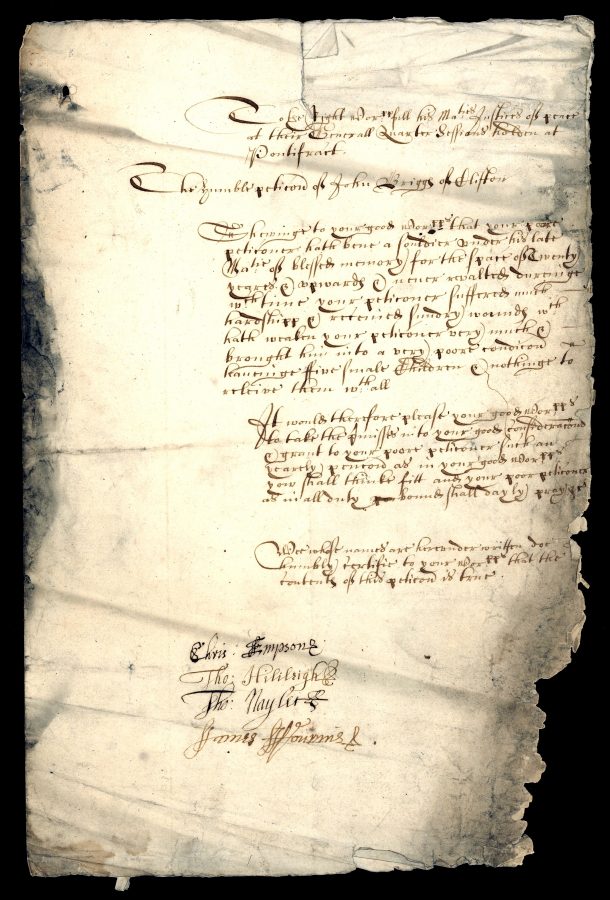 To the Right wor:pfull his Ma:ties Justices of peace
at their Generall Quarter Sessions holden at
Pontifract
The humble peticon of John Briggs of Clifton
Shewinge to your good wor:pps that your poore
peticoner hath bene a souldier under his late
Ma:tie of blessed memory for the space of Twenty
yeares & upwards & never revolted dureinge
wch time your peticoner suffered much
hardshipp & received sundry wounds wch
hath weaken your peticoner very much &
brought him into a very poore condicon
haveinge ffive smale Children & nothinge to
releive them wthall
It would therefore please your good wor:pps
to take the p'misses into your good consideracons
& grant to your poore peticoner such an
yearely pencon as in your good wor:pps
yow shall thinke fitt and your poor peticoner
as in all duty bound shall dayly pray &c
Wee whose names are hereunder written doe
humbly certifie to your wor:pps that the
contents of this peticon is true
Chris: Empson
Tho:
Tho: Nayler
James